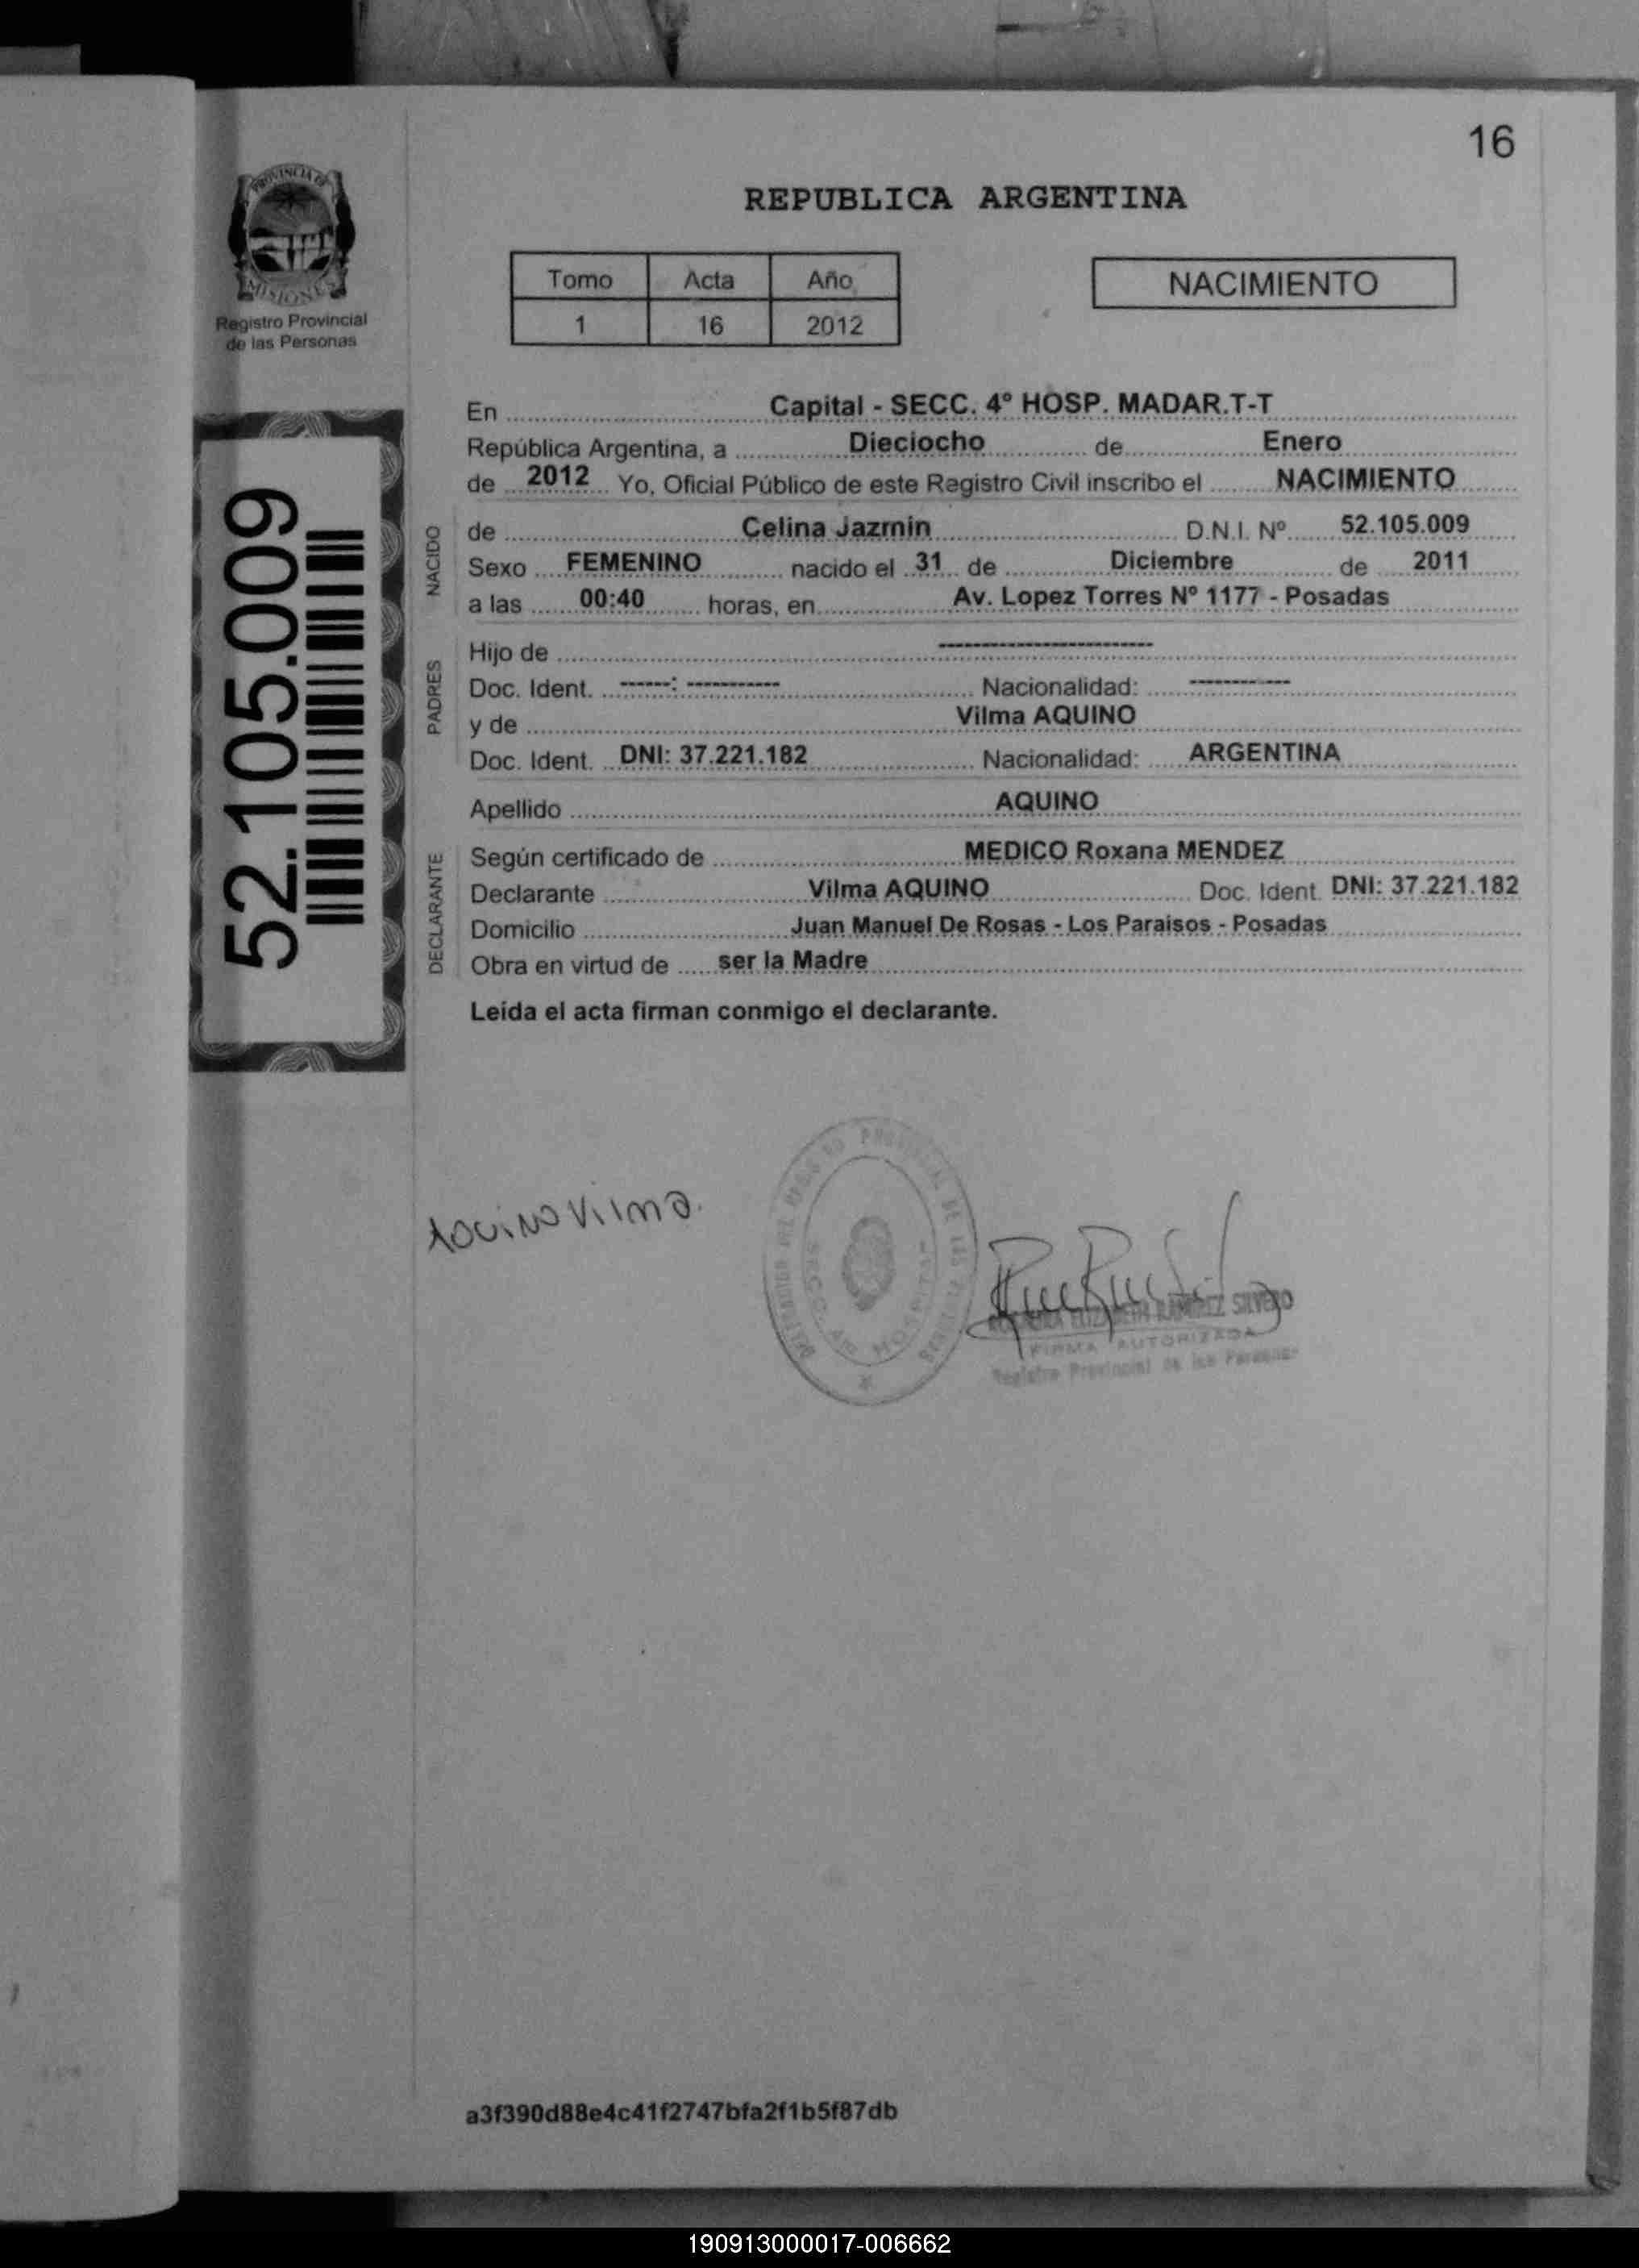 16
REPUBLICA ARGENTINA
PROVINCIA DE
MISIONES
Registro Provincial
de las Personas
Tomo Acta Año
1 16 2012
NACIMIENTO
52.105.009
En Capital - SECC. 4º HOSP. MADAR.T-T
República Argentina, a Dieciocho de Enero
de 2012 Yo, Oficial Público de este Registro Civil inscribo el NACIMIENTO
NACIDO
de Celina Jazmin D.N.I. Nº 52.105.009
Sexo FEMENINO nacido el 31 de Diciembre de 2011
a las 00:40 horas, en Av. Lopez Torres Nº 1177 - Posadas
PADRES
Hijo de --------------------
Doc. Ident. ------: ----------- Nacionalidad: -----------
y de Vilma AQUINO
Doc. Ident. DNI: 37.221.182 Nacionalidad: ARGENTINA
Apellido AQUINO
DECLARANTE
Según certificado de MEDICO Roxana MENDEZ
Declarante Vilma AQUINO Doc. Ident. DNI: 37.221.182
Domicilio Juan Manuel De Rosas - Los Paraisos - Posadas
Obra en virtud de ser la Madre
Leída el acta firman conmigo el declarante.
Aquino Vilma.
ELIZABETH RAMIREZ SILVERO
FIRMA AUTORIZADA
Registro Provincial de las Personas
a3f390d88e4c41f2747bfa2f1b5f87db
190913000017-006662